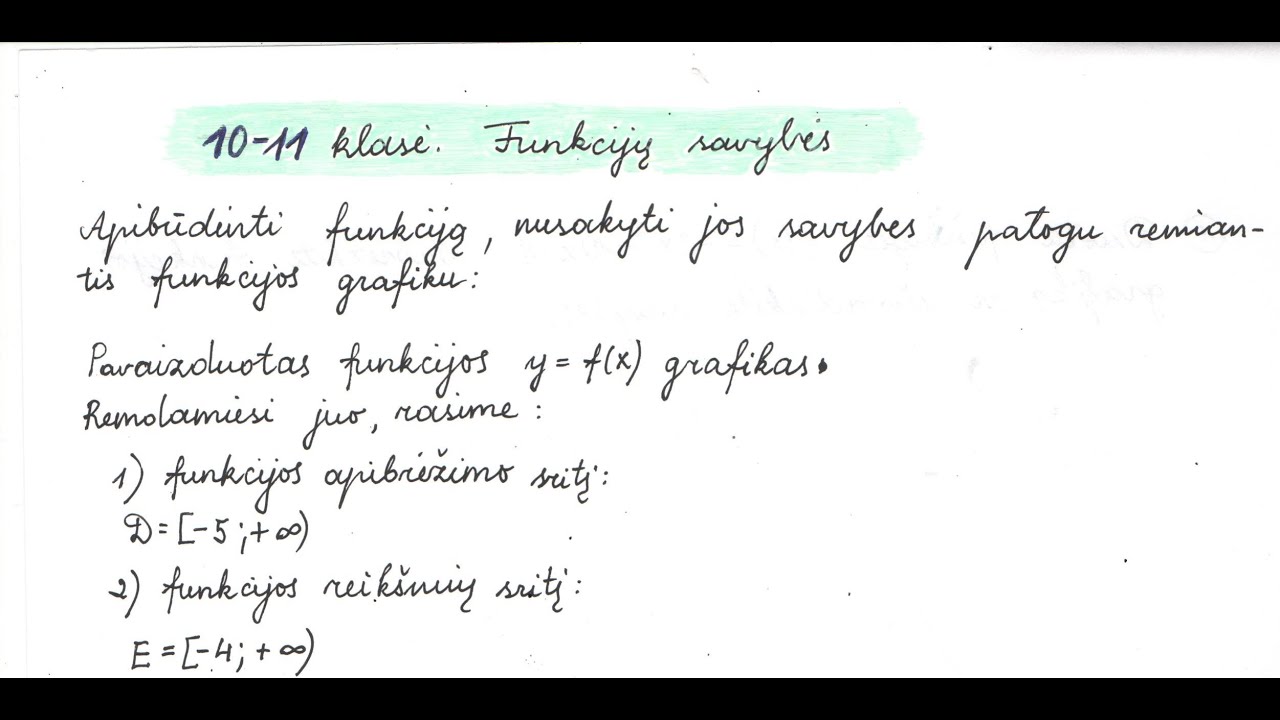 10-11 klasė. Funkcijų savybės
Apibūdinti funkciją, nusakyti jos savybes patogu remian-
tis funkcijos grafiku:
Pavaizduotas funkcijos y = f(x) grafikas.
Remdamiesi juo, rasime:
1) funkcijos apibrėžimo sritį:
D=[-5;+∞)
2) funkcijos reikšmių sritį:
E=[-4;+∞)